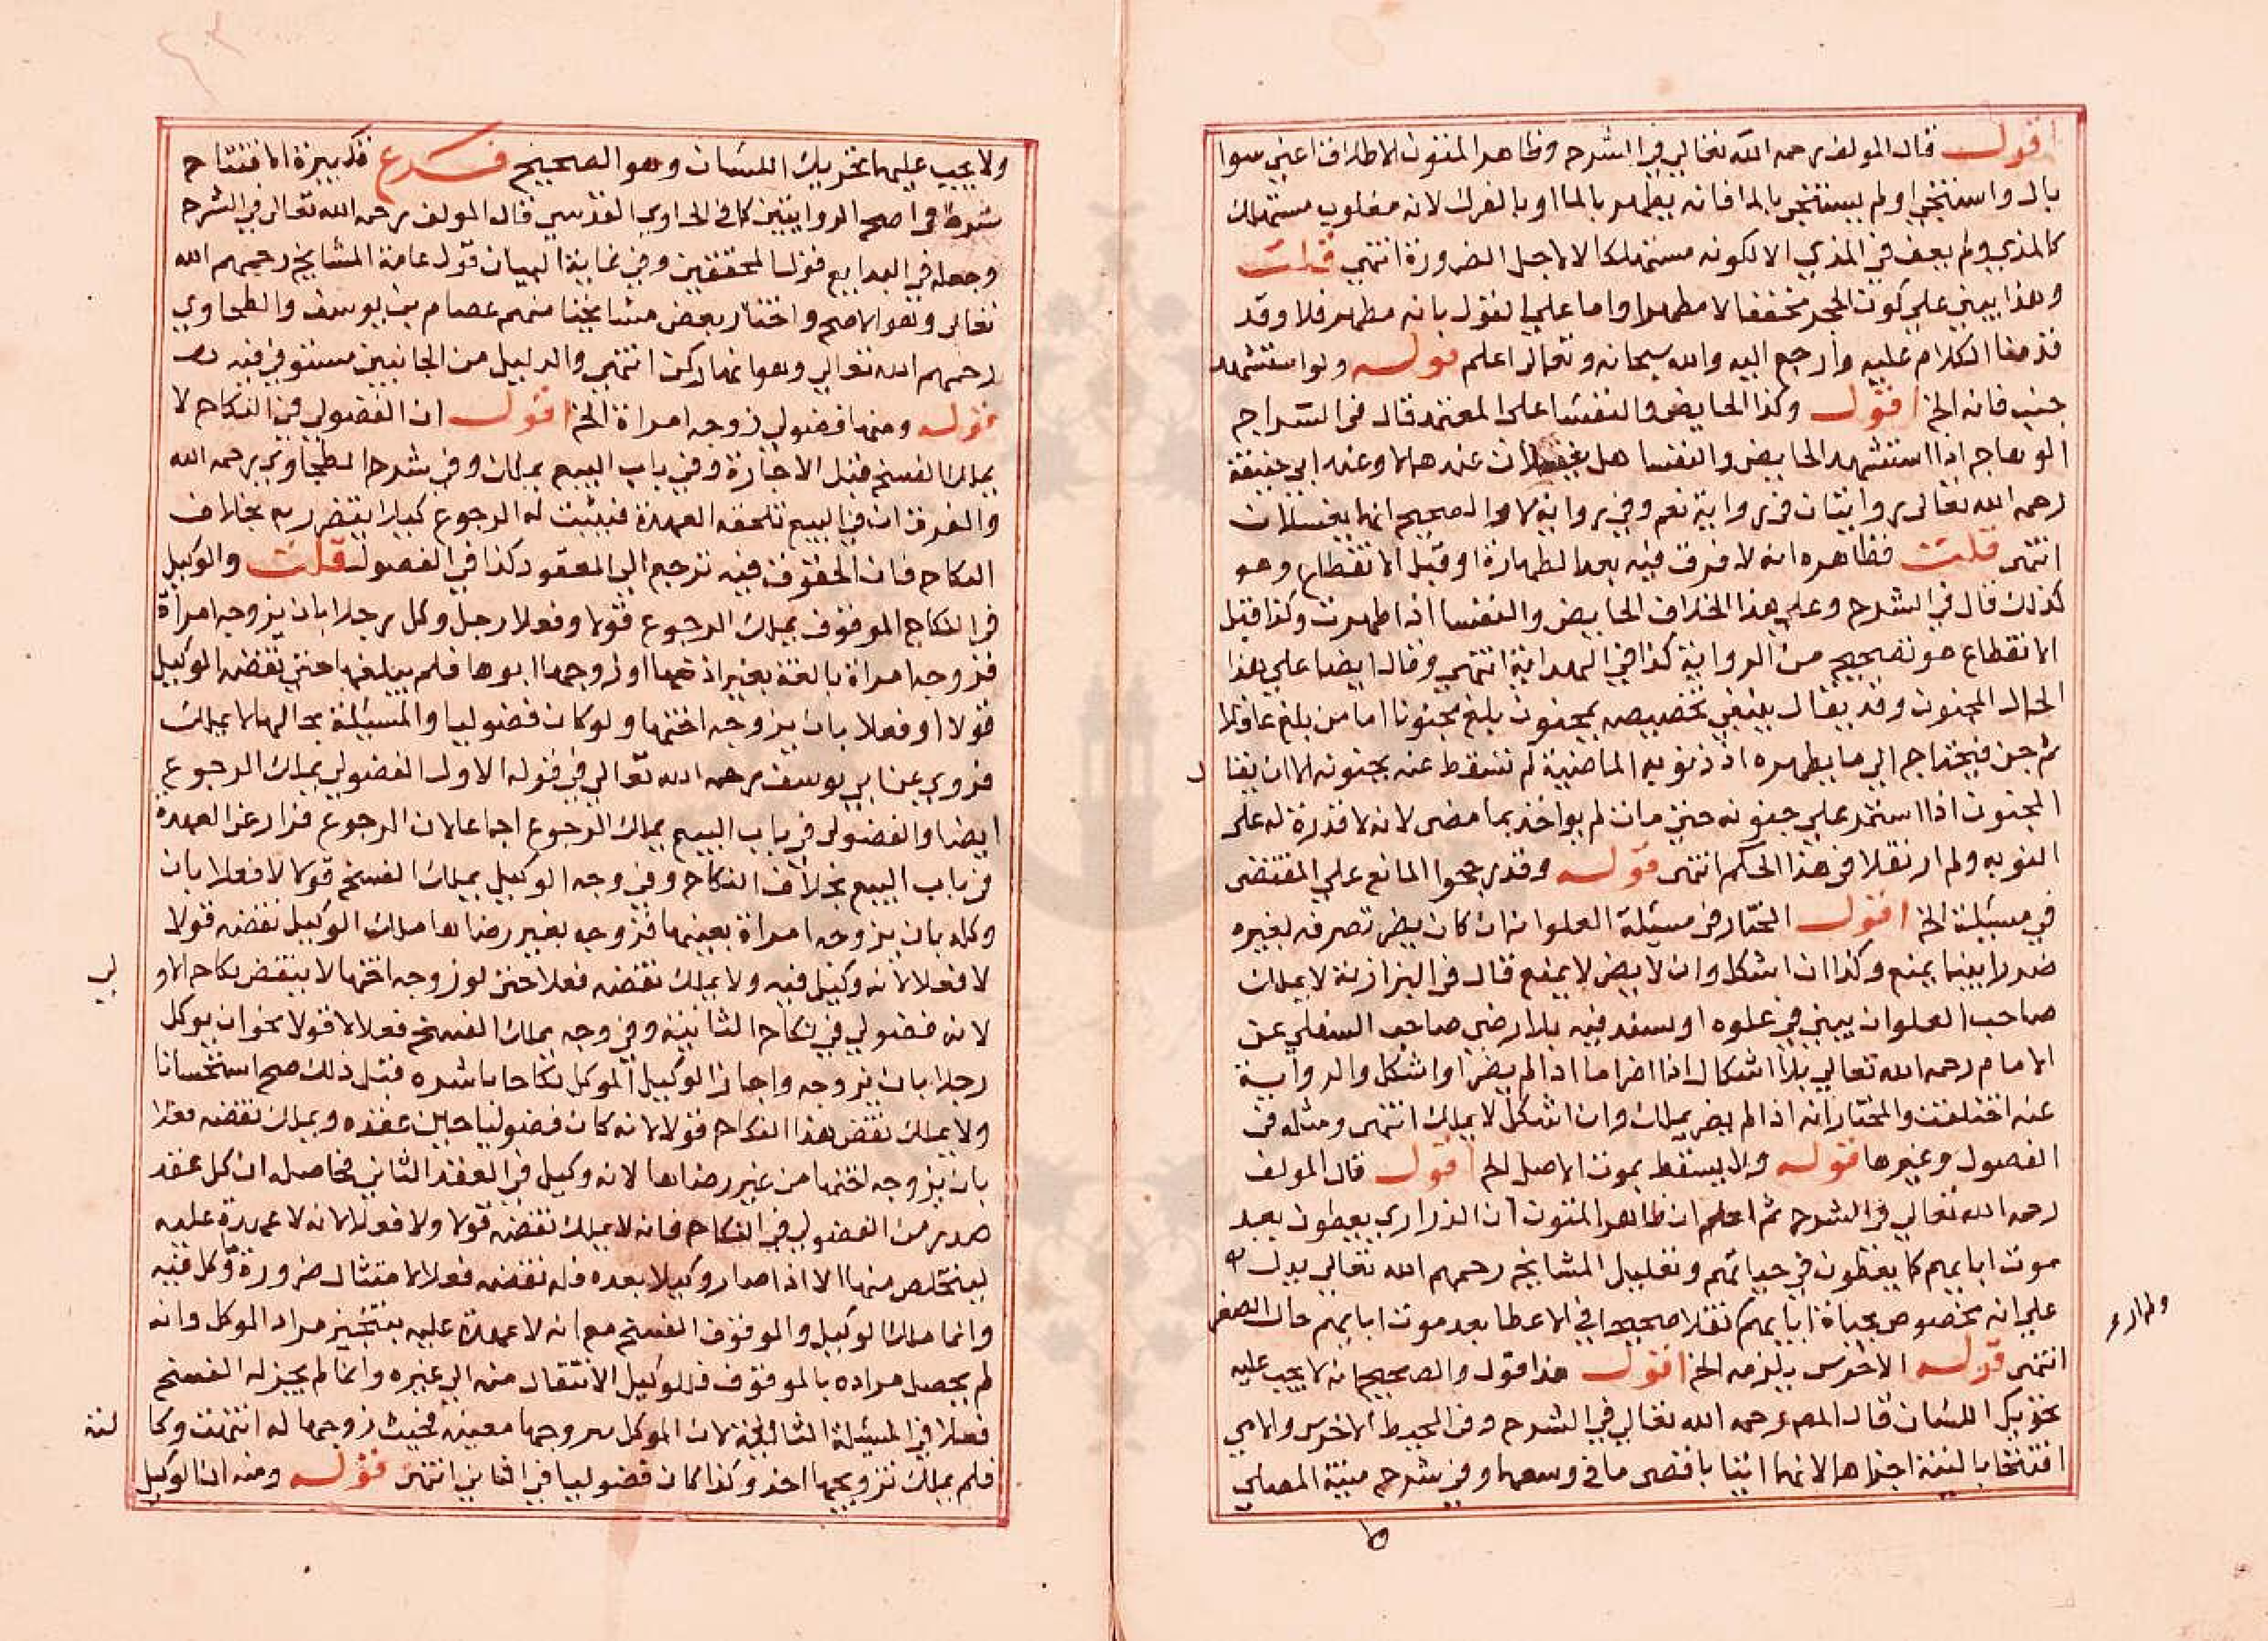 اقول قال المولف رحمه الله تعالى في الشرح وظاهر المتون الاطلاق اعني سوا
بال واستنجى اولم يستنجي بالما فانه يطهر بالما او بالفرك لانه مغلوب مستهلك
كالمذي ولم يعف في المذي الا لكونه مستهلكا لا لاجل الضرورة انتهى قلت
وهذا يبني على كون الحجر مخففا لا مطهرا واما على القول بانه مطهر فلا وقد
قدمنا الكلام عليه وارجع اليه والله سبحانه وتعالى اعلم قوله ولو استشهد
جنب فانه الخ اقول وكذا الحايض والنفسا على المعتمد قال في السراج
الوهاج اذا استشهد الحايض والنفسا هل يغسلان عندهما لا وعند ابي حنيفة
رحمه الله تعالى روايتان في رواية نعم وفي رواية لا والصحيح انهما يغسلان
انتهى قلت فظاهره انه لا فرق فيه بعد الطهارة او قبل الانقطاع وهو
كذلك قال في الشرح وعلى هذا الخلاف الحايض والنفسا اذا طهرت وكذا قبل
الانقطاع هو تصحيح من الرواية كذا في الهداية انتهى وقال ايضا على هذا
الحال المجنون وقد يقال ينبغي تخصيصه بمجنون بلغ مجنونا اما من بلغ عاقلا
ثم جن فيحتاج الى ما يطهره اذ ذنوبه الماضية لم تسقط عنه بجنونه الا ان يقا
ل
المجنون اذا استمر على جنونه حتى مات لم يواخذ بما مضى لانه لا قدرة له على
التوبه ولم ار نقلا في هذا الحكم انتهى قوله وقد رجحوا المانع على المقتضى
في مسئلة الخ اقول المختار في مسئلة العلو انه ان كان يضر تصرفه بغيره
ضررا بينا يمنع وكذا ان اشكل وان لا يضر لا يمنع قال في البزازية لا يملك
صاحب العلو ان يبني في علوه او يسند فيه بلا رضى صاحب السفلي عن
الامام رحمه الله تعالى بلا اشكال اذا اضر اما اذا لم يضر او اشكل والرواية
عنه اختلفت والمختار انه اذا لم يضر يملك وان اشكل لا يملك انتهى ومثله في
الفصول وغيرها قوله وال يسقط بموت الاصل الخ اقول قال المولف
رحمه الله تعالى في الشرح ثم اعلم ان ظاهر المتون ان الذراري يعطون بعد
موت ابايهم كا يعطون في حياتهم وتعليل المشايخ رحمهم الله تعالى يدل
على انه مخصوص بحياة ابايهم نقلا صحيحا في الاعطا بعد موت ابايهم حال الصغر
انتهى قوله الاخرس يلزمه الخ اقول هذا قول والصحيح انه لا يجب عليه
تحريك اللسان قال المص رحمه الله تعالى في الشرح وفي المحيط الاخرس والامي
افتتحا بالنية اجزاهما لانهما اتيا باقصى ما في وسعهما وفي شرح منية المصلي
ولا يجب عليهما تحريك اللسان وهو الصحيح فرع فتكبيرة الافتتاح
شرط في اصح الروايتين كما في الحاوي القدسي قال المولف رحمه الله تعالى في الشرح
وجعله في البدايع قول المحققين وفي غاية البيان قول عامة المشايخ رحمهم الله
تعالى وهو الاصح واختار بعض مشايخنا منهم عصام بن يوسف والطحاوي
رحمهم الله تعالى وهو انها ركن انتهى والدليل من الجانبين مستوفي فيه
قوله ومنها فضولي زوجه امراة الخ اقول ان الفضولي في النكاح لا
يملك الفسخ قبل الاجازة وفي باب البيع يملك وفي شرح الطحاوي رحمه الله
والفرق ان في البيع تلحقه العهدة فيثبت له الرجوع كيلا يتضرر به بخلاف
النكاح فان الحقوق فيه ترجع الى المعقود كذا في الفصول قلت والوكيل
في النكاح الموقوف يملك الرجوع قولا وفعلا رجل وكل رجلا بان يزوجه امراة
فزوجه امراة بالغة بغير اذنها او زوجها ابوها فلم يبلغها حتى نقض الوكيل
قولا او فعلا بان يزوجه اختها ولو كان فضوليا والمسئلة بحالها لا يملك
فروي عن ابي يوسف رحمه الله تعالى في قوله الاول الفضولي يملك الرجوع
ايضا والفضولي في باب البيع يملك الرجوع اجماعا لان الرجوع فرار عن العهدة
في باب البيع بخلاف النكاح وفي وجه الوكيل يملك الفسخ قولا لا فعلا بان
وكله بان يزوجه امراة بعينها فزوجه بغير رضاها ملك الوكيل نقضه قولا
لا فعلا لانه وكيل فيه ولا يملك نقضه فعلا حتى لو زوجه اختها لا ينتقض نكاح الاو
لي
لانه فضولي في نكاح الثانية وفي وجه يملك الفسخ فعلا لا قولا نحو ان يوكل
رجلا بان يزوجه واجاز الوكيل الموكل نكاحا باشره قبل ذلك صح استحسانا
ولا يملك نقض هذا النكاح قولا لانه كان فضوليا حين عقده ويملك نقضه فعلا
بان يزوجه اختها من غير رضاها لانه وكيل في العقد الثاني فحاصله ان كل عقد
صدر من الفضولي في النكاح فانه لا يملك نقضه قولا ولا فعلا لانه لا عهدة عليه
ليتخلص منها الا اذا صار وكيلا بعده فله نقضه فعلا لامتثال ضرورة وكل فيه
وانما ملك الوكيل والموقوف الفسخ مع انه لا عهدة عليه بتنجيز مراد الموكل وانه
لم يحصل مراده بالموقوف فللوكيل الانتقال منه الى غيره وانما لم يجز له الفسخ
فعلا في المسئلة الثا
لثة
لان الموكل بتزوجها معينة فحيث زوجها له انتهت وكا
فلم يملك تزويجها اخذ وكذا كان فضوليا في الثاني انتهى قوله ومنه ان الوكيل